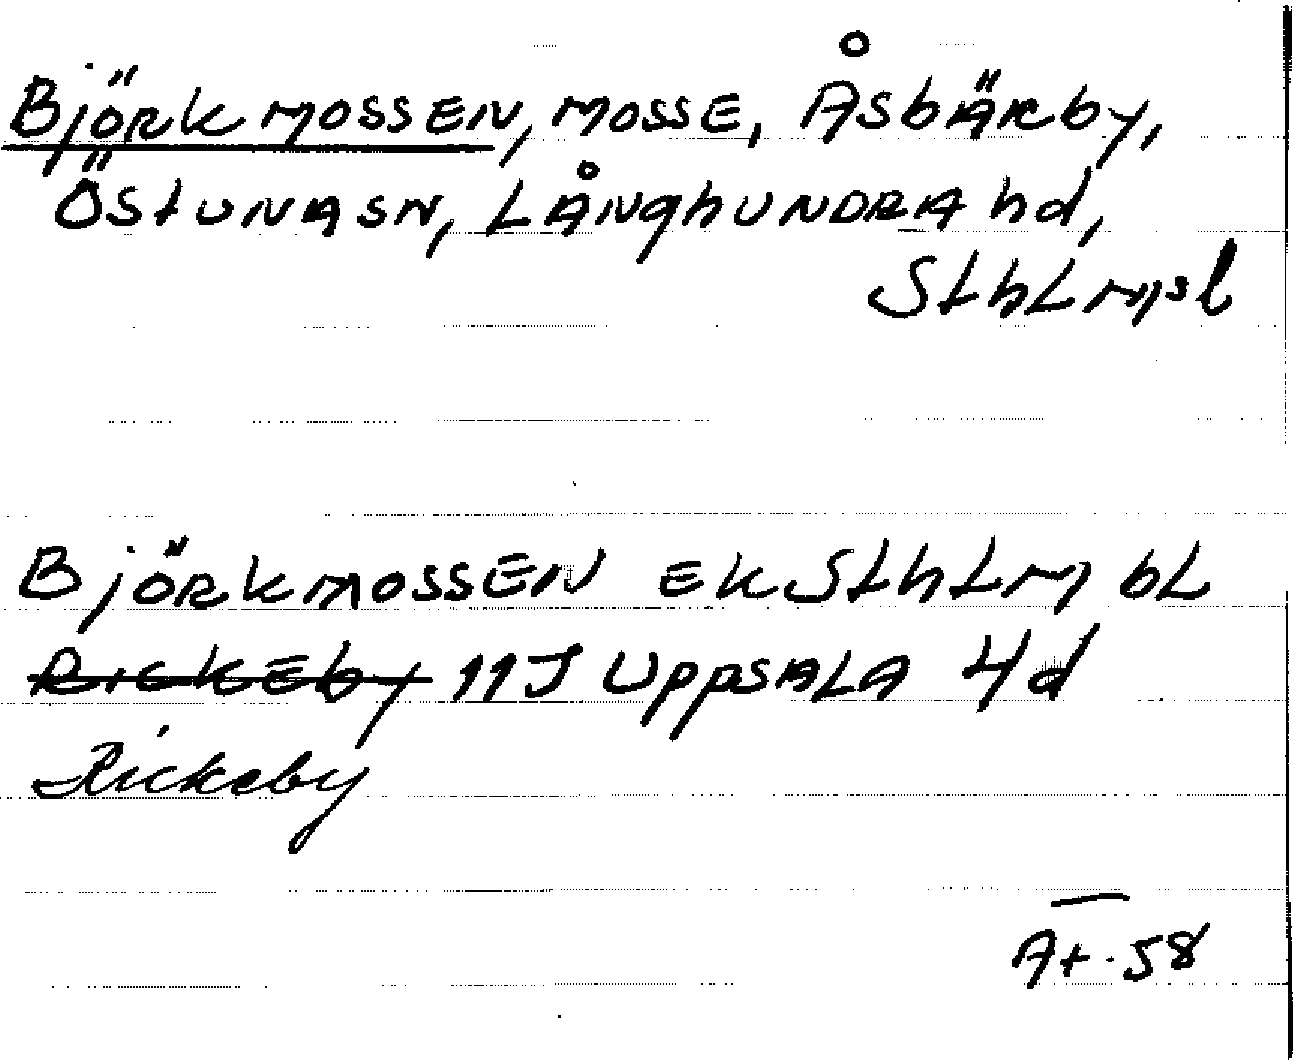 Björkmossen, mosse, Åsbärby,
Östuna sn, Långhundra hd,
Sthlmsl
Björkmossen ek Sthlm bl
Rickeby 11J Uppsala 4d
Rickeby
At. 58